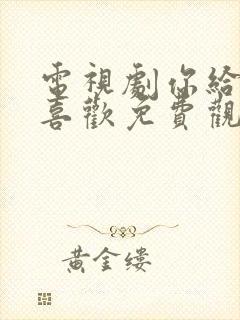 電視劇你給
喜歡免費觀
黃金缕